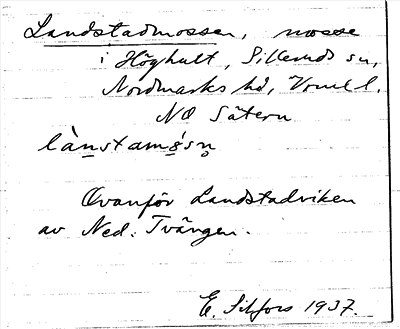 Landstadmossen, mosse
i Höghult, Sillerud sn,
Nordmarks hd, Värml l.
NO Sätern
lànstamo̯sn̥
Ovanför Landstadviken
av Ned. Tvängen.
E. Silfors 1937.